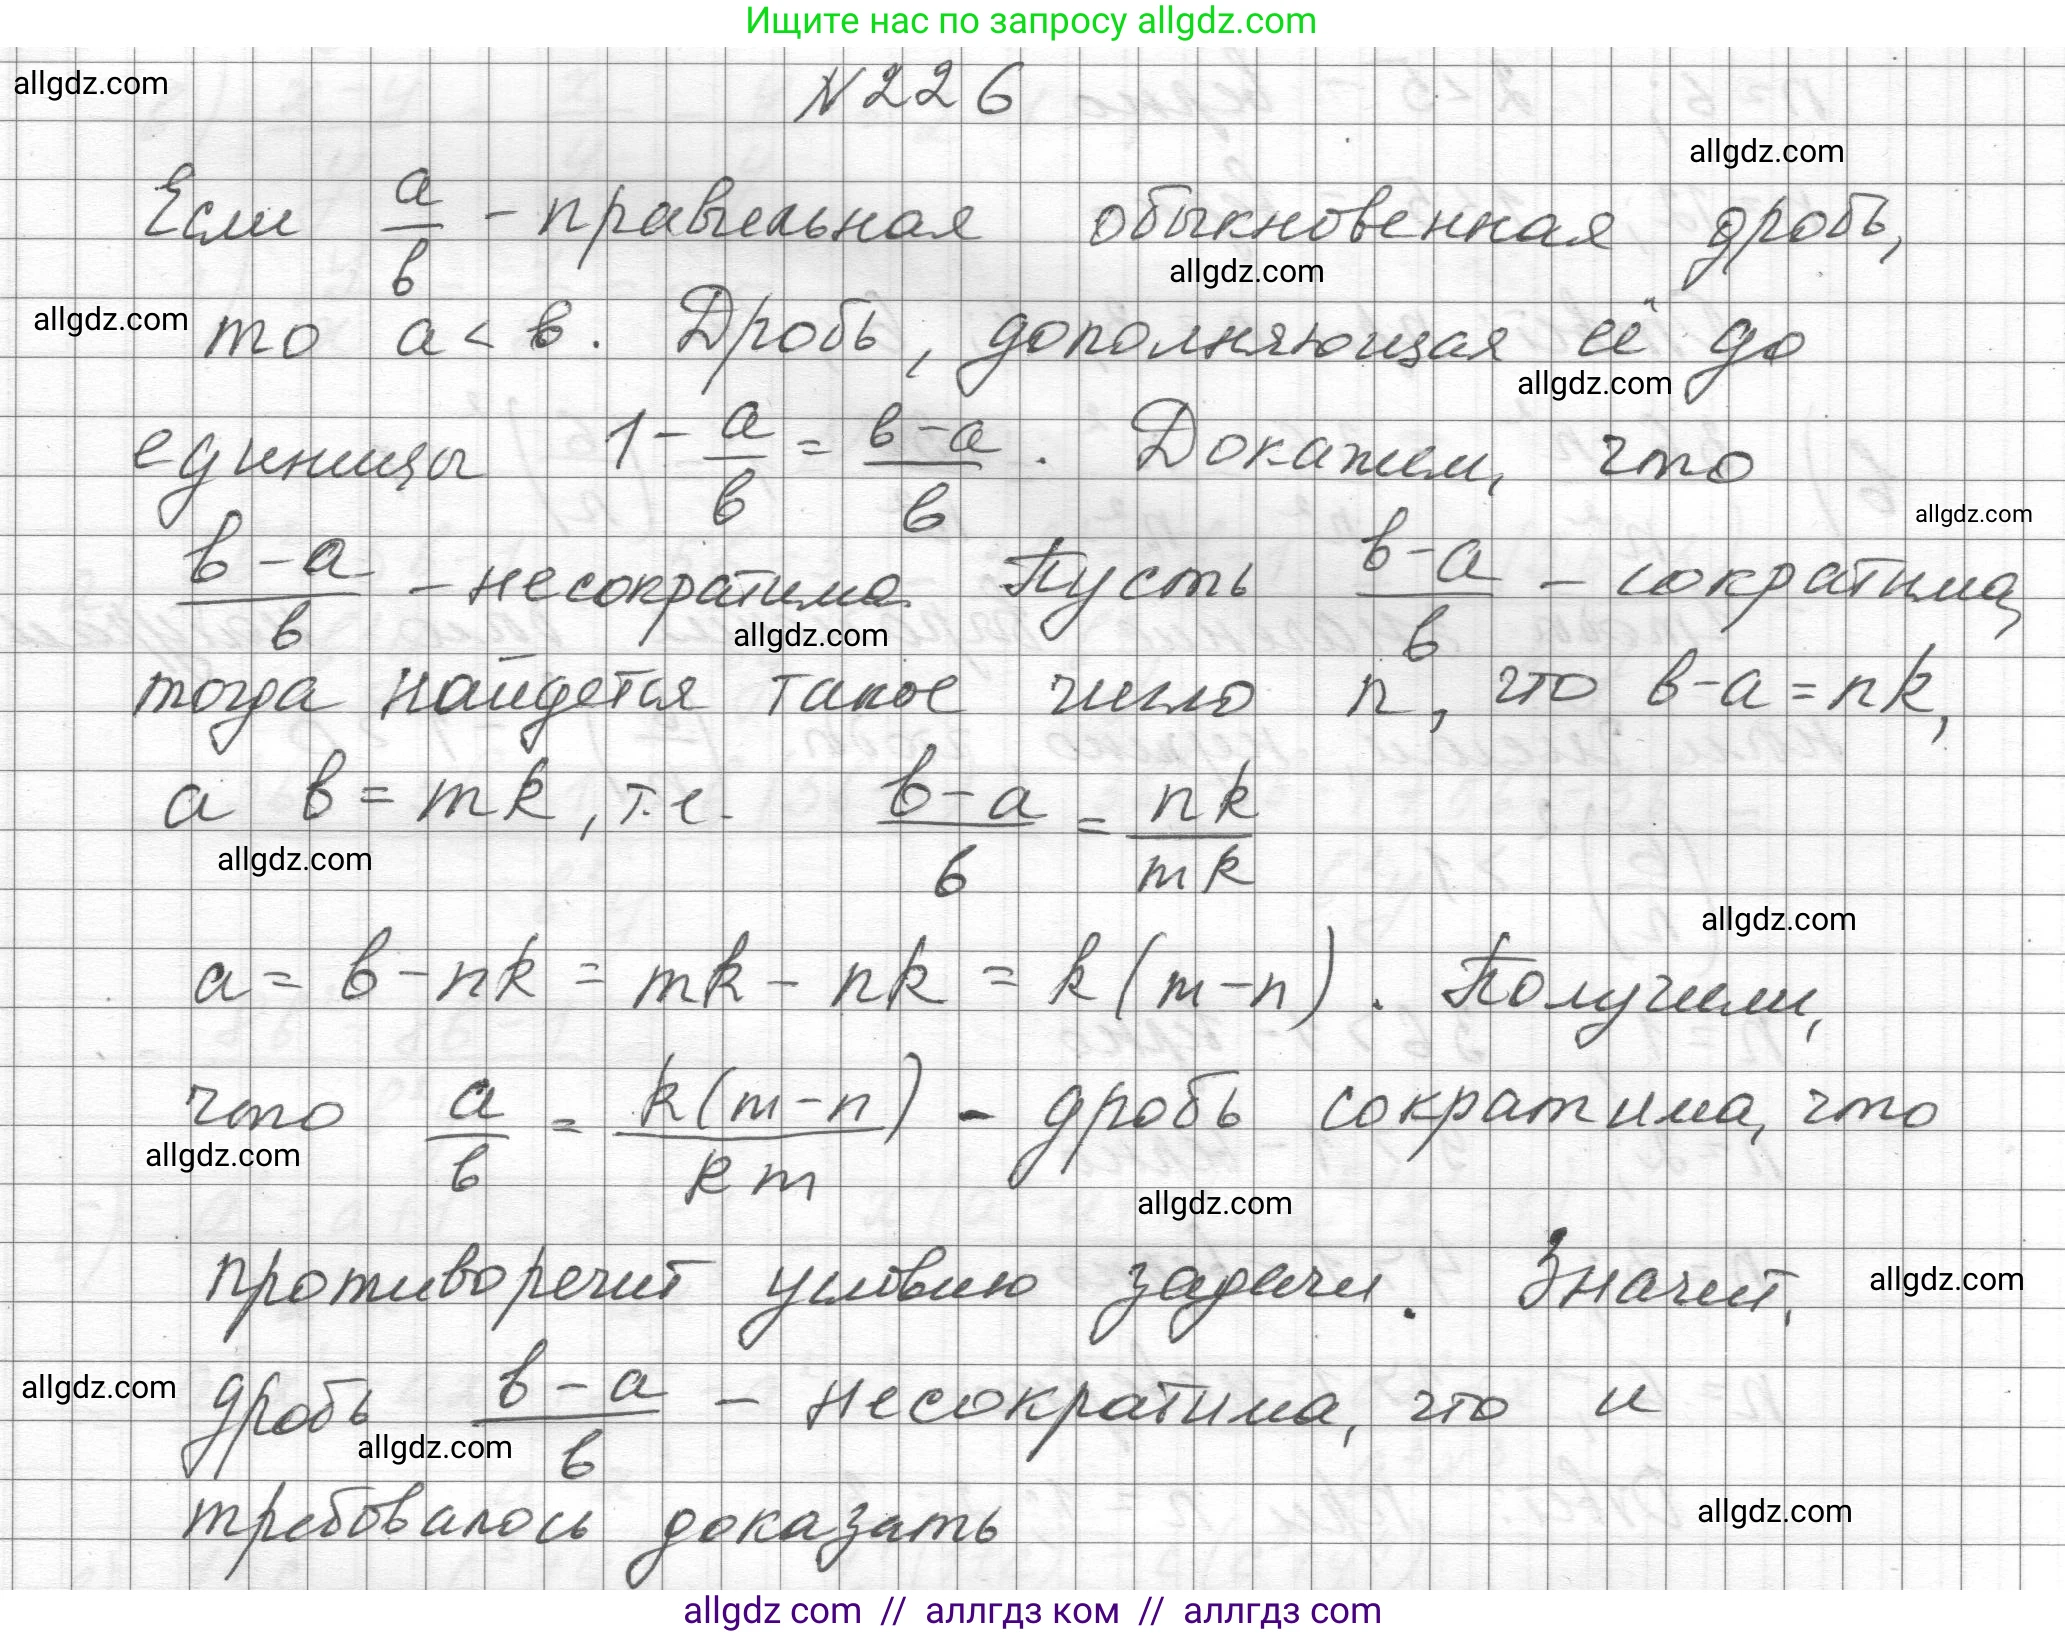 Ищите нас по запросу allgdz.com
allgdz.com
N226
allgdz.com
Если a/в - правильная обыкновенная дробь,
allgdz.com
allgdz.com
то a < в. Дробь, дополняющая её до
allgdz.com
единицы 1 - a/в = в-a/в. Докажем, что
allgdz.com
в-a/в - несократима. Пусть в-a/в - сократима,
allgdz.com
тогда найдется такое число n, что в-a=nk,
а в = mk, т.е. в-a/в = nk/mk
allgdz.com
allgdz.com
a = в-nk = mk - nk = k(m-n). Получили,
что a/в = k(m-n)/km - дробь сократима, что
allgdz.com
allgdz.com
противоречит условию задачи. Значит,
allgdz.com
allgdz.com
дробь в-a/в - несократима, что и
allgdz.com
требовалось доказать
allgdz.com
allgdz com // аллгдз ком // аллгдз com